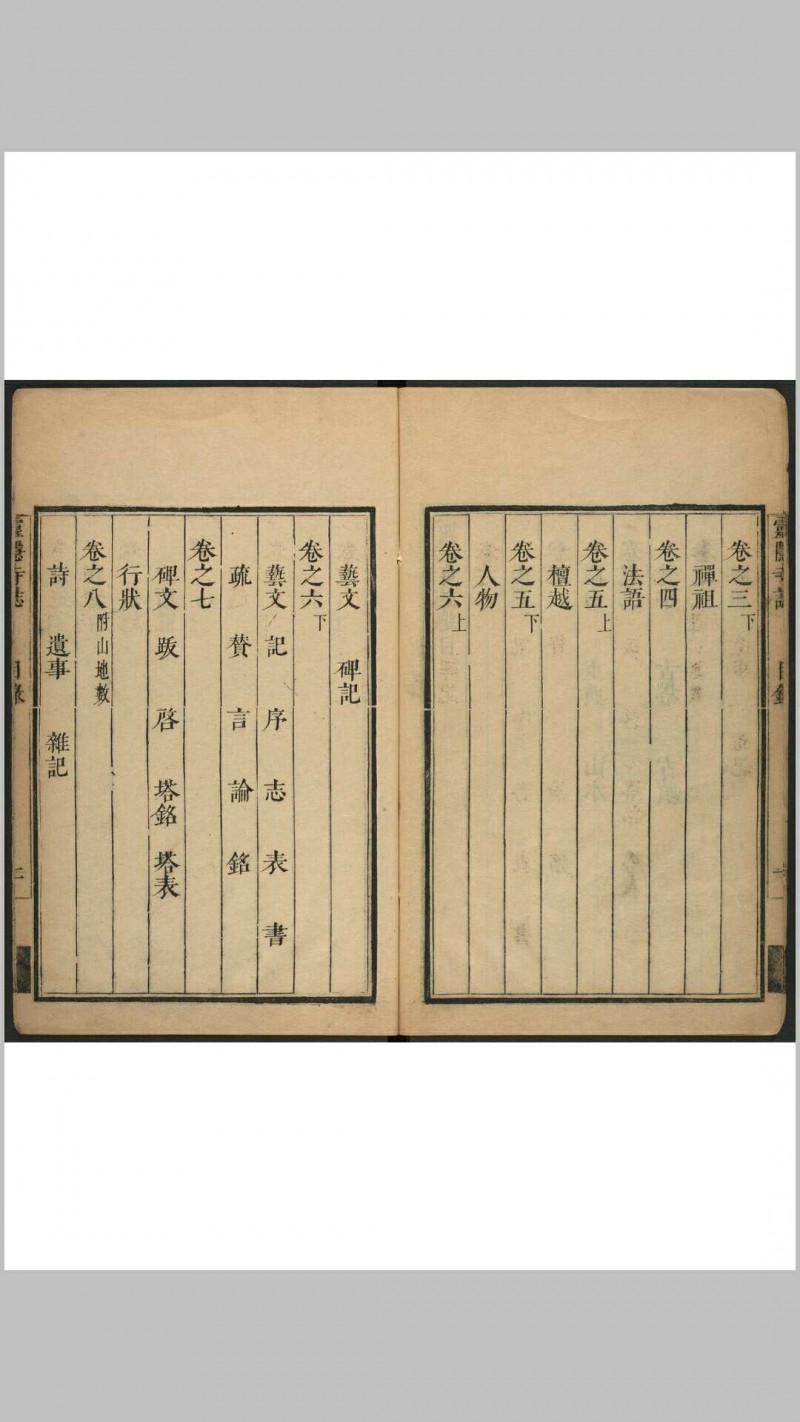 卷之三下
禪祖
卷之四
法語
卷之五上
檀越
卷之五下
人物
卷之六上
藝文 碑記
卷之六下
藝文 記 序 志 表 書
疏 贊 言 論 銘
卷之七
碑文 跋 啓 塔銘 塔表
行狀
卷之八附山地數
詩 遺事 雜記
靈隱寺誌 目錄 二